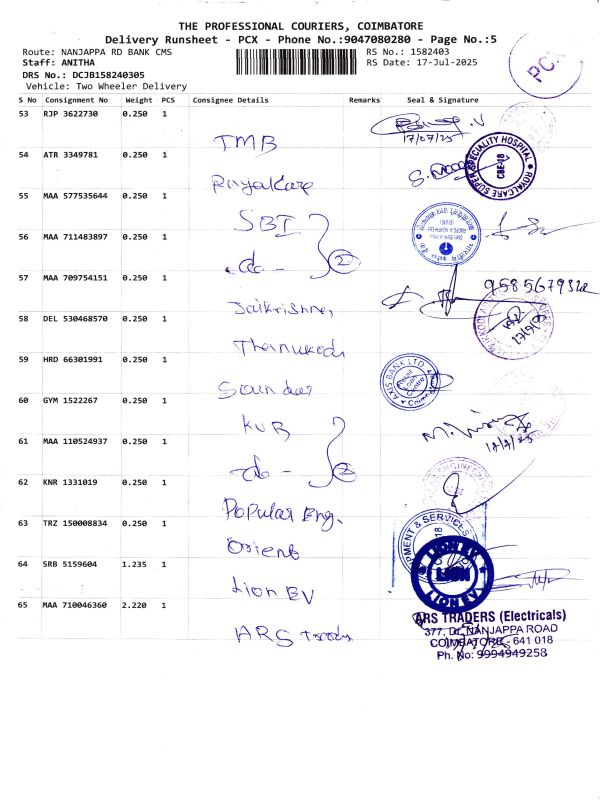 THE PROFESSIONAL COURIERS, COIMBATORE
Delivery Runsheet - PCX - Phone No.:9047080280 - Page No.:5
Route: NANJAPPA RD BANK CMS RS No.: 1582403
Staff: ANITHA RS Date: 17-Jul-2025
DRS No.: DCJB158240305
Vehicle: Two Wheeler Delivery
PCX
S No Consignment No Weight PCS Consignee Details Remarks Seal & Signature
53 RJP 3622730 0.250 1 TMB
17/07/25
54 ATR 3349781 0.250 1 Royalcare
ROYALCARE SUPER SPECIALITY HOSPITAL CBE-18
55 MAA 577535644 0.250 1 SBI
56 MAA 711483897 0.250 1 -do- 2
57 MAA 709754151 0.250 1 Jaikrishna
58 DEL 530468570 0.250 1 Thanukodi
17/7/25
59 HRD 66301991 0.250 1 Soundar
AXIS BANK LTD.
60 GYM 1522267 0.250 1 KVB
61 MAA 110524937 0.250 1 -do- 2
17/7/25
62 KNR 1331019 0.250 1 Popular Eng.
63 TRZ 150008834 0.250 1 Orient
64 SRB 5159604 1.235 1 Lion EV
LION EV
LION
LION EV
65 MAA 710046360 2.220 1 ARS Trads
ARS TRADERS (Electricals)
377, Dr. NANJAPPA ROAD
COIMBATORE - 641 018
Ph. No: 9994949258